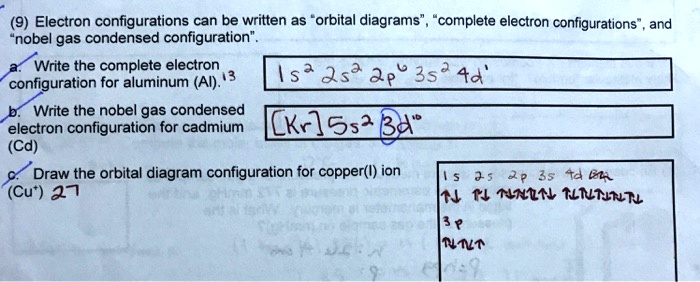 (9) Electron configurations can be written as "orbital diagrams", "complete electron configurations", and
"nobel gas condensed configuration".
a. Write the complete electron
configuration for aluminum (Al). 13
1s² 2s² 2p⁶ 3s² 4d¹
b. Write the nobel gas condensed
electron configuration for cadmium
(Cd)
[Kr] 5s² 3d¹⁰
c. Draw the orbital diagram configuration for copper(I) ion
(Cu⁺) 27
1s 2s 2p 3s 4d
↑↓ ↑↓ ↑↓↑↓↑↓ ↑↓↑↓↑↓↑↓↑↓
3p
↑↓↑↓↑